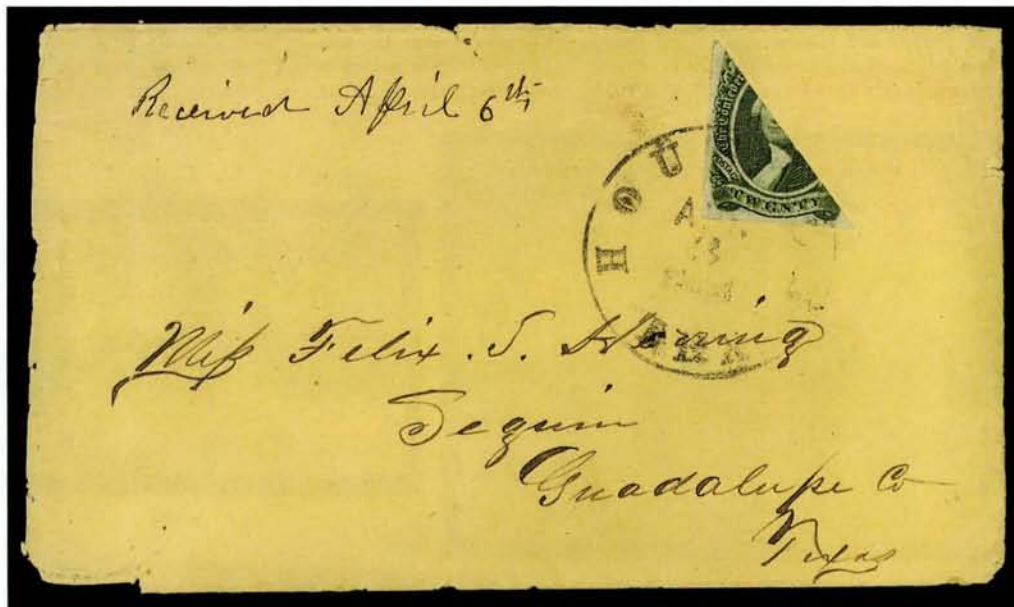 Received April 6th
The Confed
TWENTY
HOU
A
Miss Felix. S. Herring
Seguin
Guadalupe Co
Texas